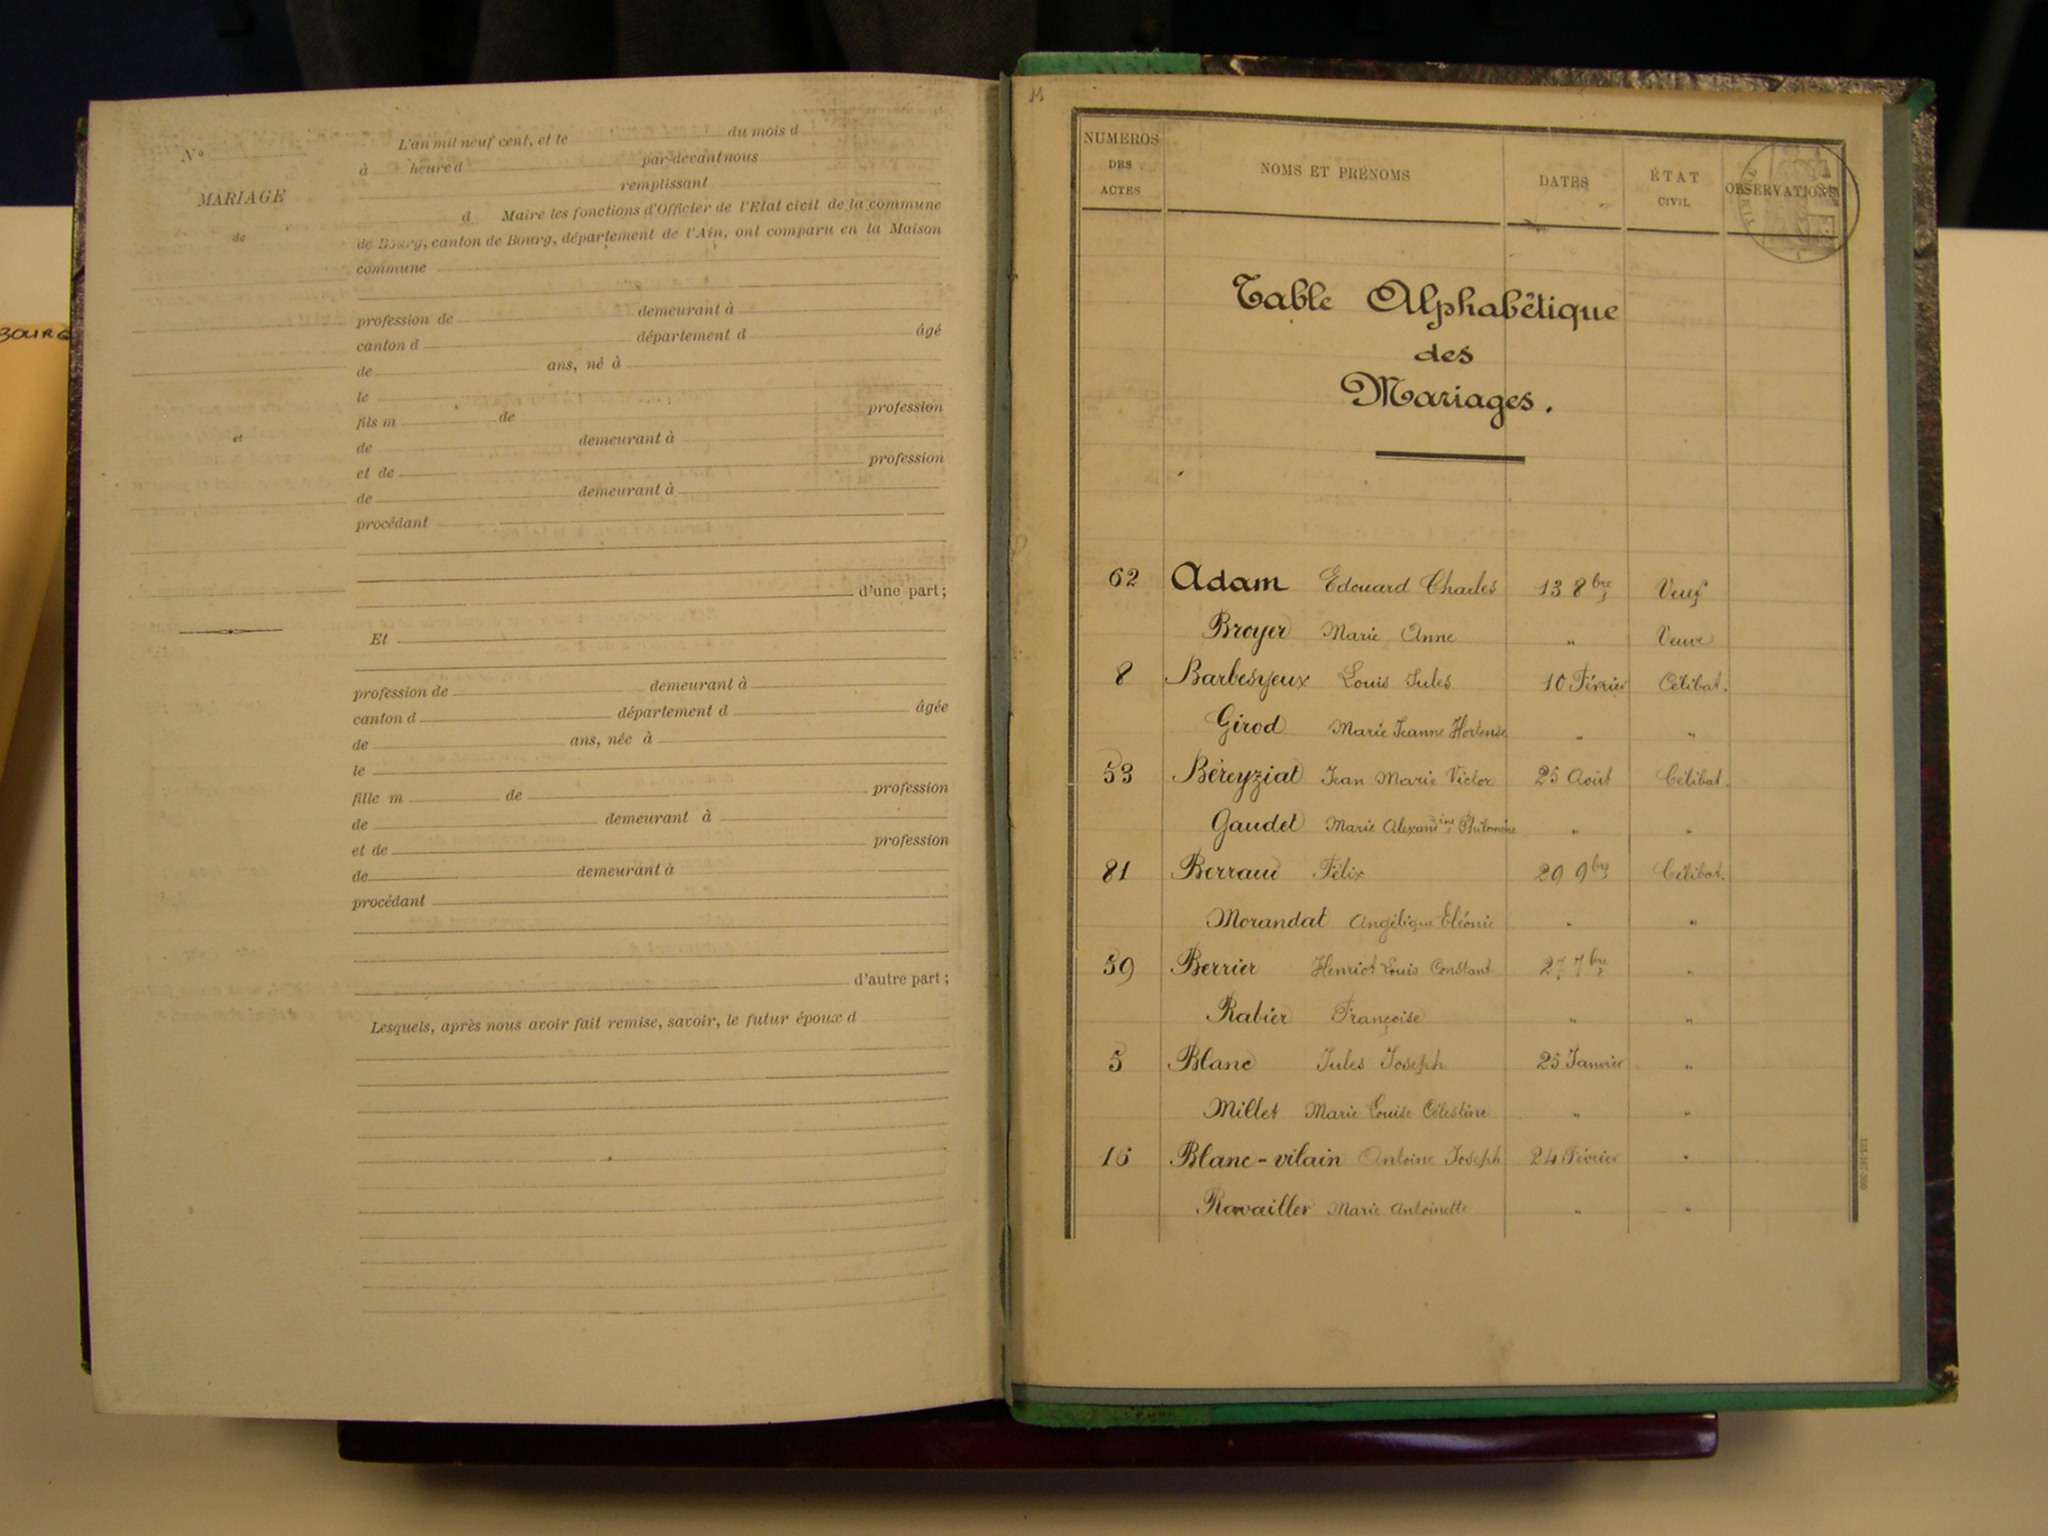 BOURG
N°
MARIAGE
de
et
L'an mil neuf cent, et le du mois d
à heure d par-devant nous
remplissant
d Maire les fonctions d'Officier de l'Etat civil de la commune
de Bourg, canton de Bourg, département de l'Ain, ont comparu en la Maison
commune
profession de demeurant à
canton d département d âgé
de ans, né à
le
fils m de profession
de demeurant à
et de profession
de demeurant à
procédant
d'une part;
Et
profession de demeurant à
canton d département d âgée
de ans, née à
le
fille m de profession
de demeurant à
et de profession
de demeurant à
procédant
d'autre part;
Lesquels, après nous avoir fait remise, savoir, le futur époux d
M
NUMEROS DES ACTES NOMS ET PRÉNOMS DATES ÉTAT CIVIL OBSERVATIONS
Table Alphabétique
des
Mariages.
62 Adam Edouard Charles 13 8bre Veuf
Broyer Marie Anne " Veuve
8 Barbesyeux Louis Jules 10 Février Célibat.
Girod Marie Jeanne Hortense " "
53 Béreyziat Jean Marie Victor 25 Août Célibat.
Gaudet Marie Alexandine Philomène " "
81 Berraud Félix 29 9bre Célibat.
Morandat Angélique Eléonie " "
59 Berrier Henriot Louis Constant 27 7bre "
Rabier Françoise " "
5 Blanc Jules Joseph 25 Janvier "
Millet Marie Louise Célestine " "
16 Blanc-vilain Antoine Joseph 24 Février "
Ravailler Marie Antoinette " "